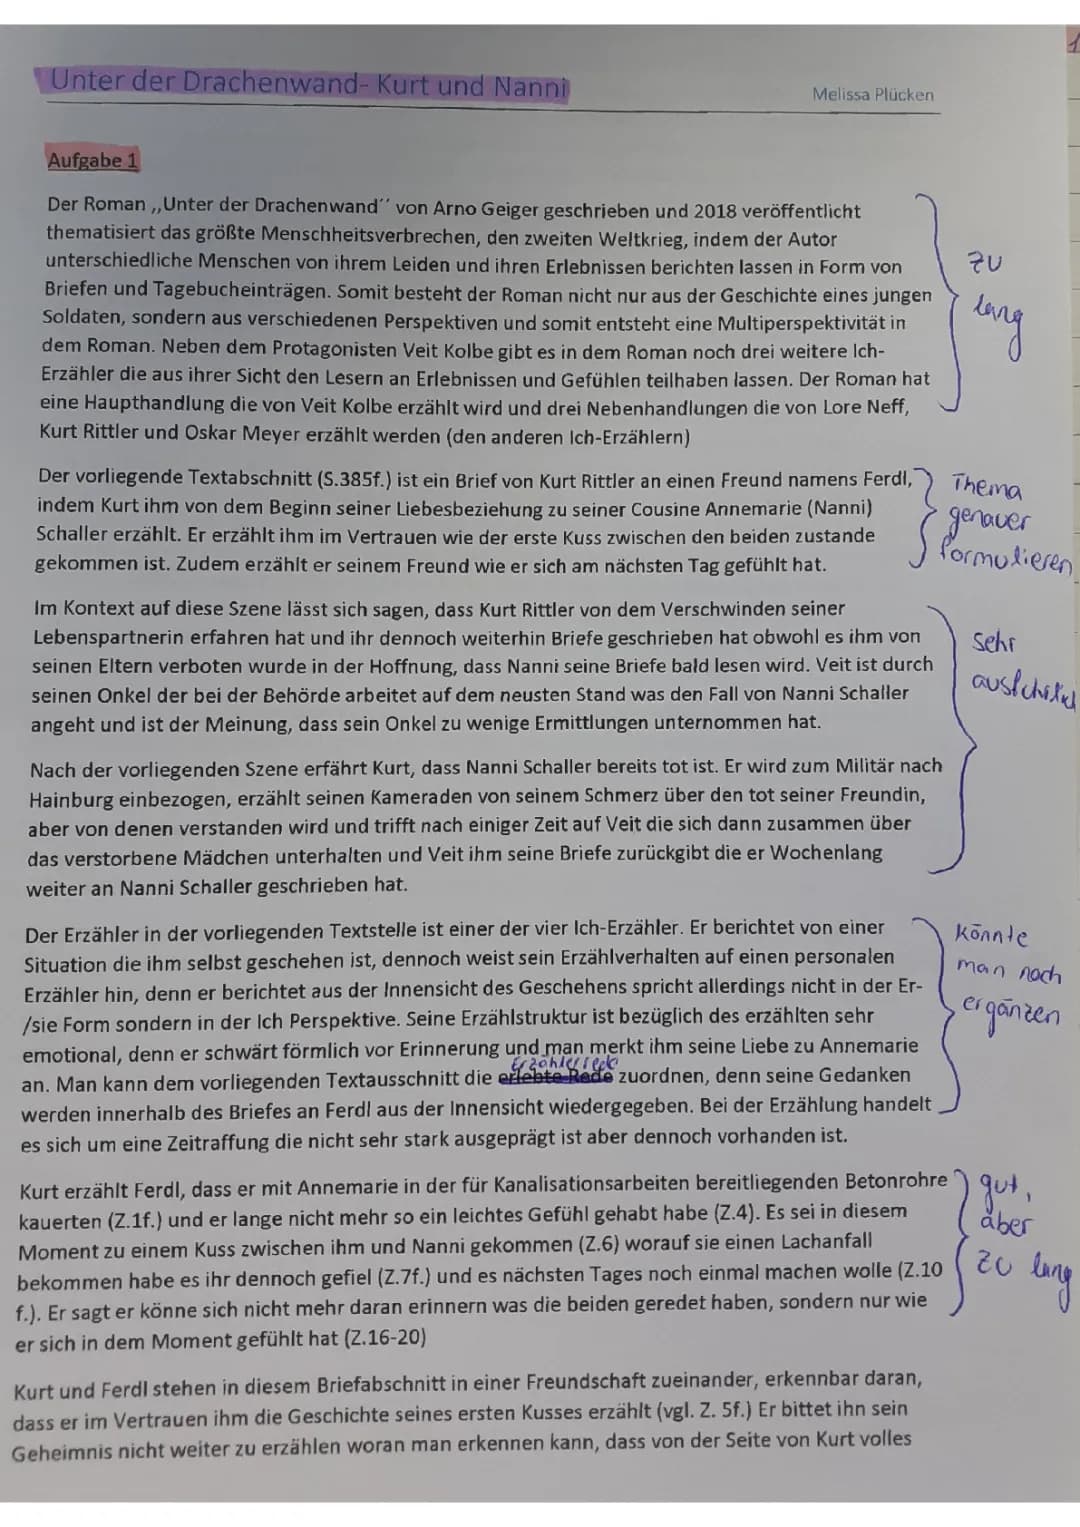 1
Unter der Drachenwand- Kurt und Nanni
Melissa Plücken
Aufgabe 1
Der Roman ,,Unter der Drachenwand´´ von Arno Geiger geschrieben und 2018 veröffentlicht
thematisiert das größte Menschheitsverbrechen, den zweiten Weltkrieg, indem der Autor
unterschiedliche Menschen von ihrem Leiden und ihren Erlebnissen berichten lassen in Form von
Briefen und Tagebucheinträgen. Somit besteht der Roman nicht nur aus der Geschichte eines jungen
Soldaten, sondern aus verschiedenen Perspektiven und somit entsteht eine Multiperspektivität in
dem Roman. Neben dem Protagonisten Veit Kolbe gibt es in dem Roman noch drei weitere Ich-
Erzähler die aus ihrer Sicht den Lesern an Erlebnissen und Gefühlen teilhaben lassen. Der Roman hat
eine Haupthandlung die von Veit Kolbe erzählt wird und drei Nebenhandlungen die von Lore Neff,
Kurt Rittler und Oskar Meyer erzählt werden (den anderen Ich-Erzählern)
zu
lang
Der vorliegende Textabschnitt (S.385f.) ist ein Brief von Kurt Rittler an einen Freund namens Ferdl,
indem Kurt ihm von dem Beginn seiner Liebesbeziehung zu seiner Cousine Annemarie (Nanni)
Schaller erzählt. Er erzählt ihm im Vertrauen wie der erste Kuss zwischen den beiden zustande
gekommen ist. Zudem erzählt er seinem Freund wie er sich am nächsten Tag gefühlt hat.
Thema
genauer
formulieren
Im Kontext auf diese Szene lässt sich sagen, dass Kurt Rittler von dem Verschwinden seiner
Lebenspartnerin erfahren hat und ihr dennoch weiterhin Briefe geschrieben hat obwohl es ihm von
seinen Eltern verboten wurde in der Hoffnung, dass Nanni seine Briefe bald lesen wird. Veit ist durch
seinen Onkel der bei der Behörde arbeitet auf dem neusten Stand was den Fall von Nanni Schaller
angeht und ist der Meinung, dass sein Onkel zu wenige Ermittlungen unternommen hat.
sehr
Nach der vorliegenden Szene erfährt Kurt, dass Nanni Schaller bereits tot ist. Er wird zum Militär nach
Hainburg einbezogen, erzählt seinen Kameraden von seinem Schmerz über den tot seiner Freundin,
aber von denen verstanden wird und trifft nach einiger Zeit auf Veit die sich dann zusammen über
das verstorbene Mädchen unterhalten und Veit ihm seine Briefe zurückgibt die er Wochenlang
weiter an Nanni Schaller geschrieben hat.
Der Erzähler in der vorliegenden Textstelle ist einer der vier Ich-Erzähler. Er berichtet von einer
Situation die ihm selbst geschehen ist, dennoch weist sein Erzählverhalten auf einen personalen
Erzähler hin, denn er berichtet aus der Innensicht des Geschehens spricht allerdings nicht in der Er-
/sie Form sondern in der Ich Perspektive. Seine Erzählstruktur ist bezüglich des erzählten sehr
emotional, denn er schwärt förmlich vor Erinnerung und man merkt ihm seine Liebe zu Annemarie
Erzählerrede
an. Man kann dem vorliegenden Textausschnitt die erlebte Rede zuordnen, denn seine Gedanken
werden innerhalb des Briefes an Ferdl aus der Innensicht wiedergegeben. Bei der Erzählung handelt
es sich um eine Zeitraffung die nicht sehr stark ausgeprägt ist aber dennoch vorhanden ist.
könnte
man noch
ergänzen
Kurt erzählt Ferdl, dass er mit Annemarie in der für Kanalisationsarbeiten bereitliegenden Betonrohre
kauerten (Z.1f.) und er lange nicht mehr so ein leichtes Gefühl gehabt habe (Z.4). Es sei in diesem
Moment zu einem Kuss zwischen ihm und Nanni gekommen (Z.6) worauf sie einen Lachanfall
bekommen habe es ihr dennoch gefiel (Z.7f.) und es nächsten Tages noch einmal machen wolle (Z.10
f.). Er sagt er könne sich nicht mehr daran erinnern was die beiden geredet haben, sondern nur wie
er sich in dem Moment gefühlt hat (Z.16-20)
gut,
aber
zu lang
Kurt und Ferdl stehen in diesem Briefabschnitt in einer Freundschaft zueinander, erkennbar daran,
dass er im Vertrauen ihm die Geschichte seines ersten Kusses erzählt (vgl. Z. 5f.) Er bittet ihn sein
Geheimnis nicht weiter zu erzählen woran man erkennen kann, dass von der Seite von Kurt volles